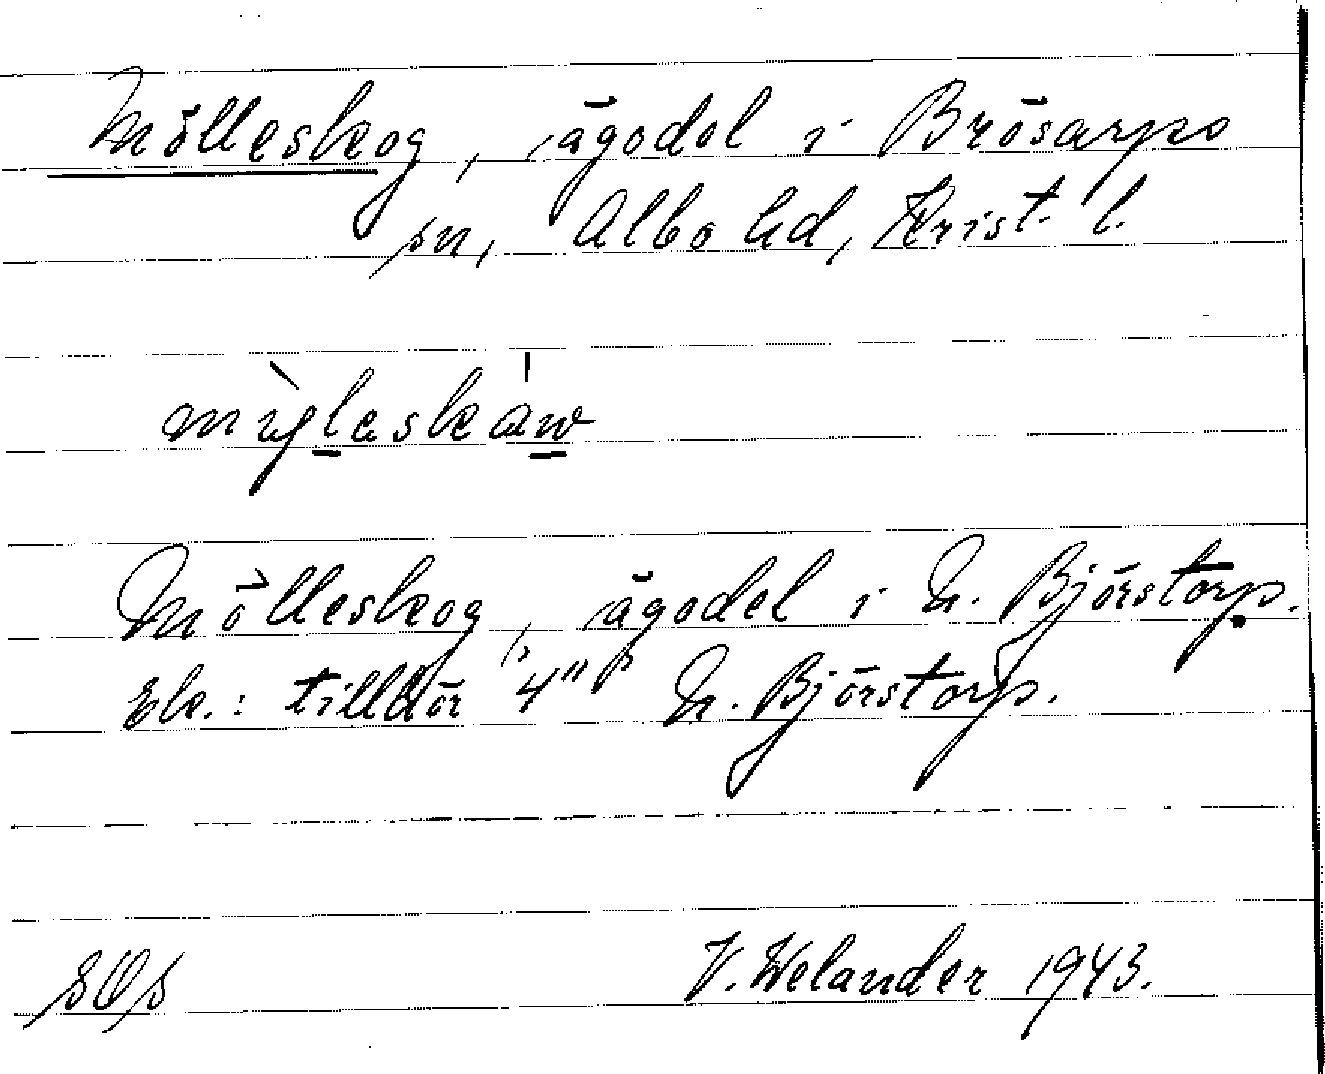 Mölleskog, ägodel i Brösarps
sn, Albo hd, Krist. l.
Mölleskog, ägodel i N. Björstorp.
Ek.: tillhör 4" N. Björstorp.
SOS V. Welander 1943.